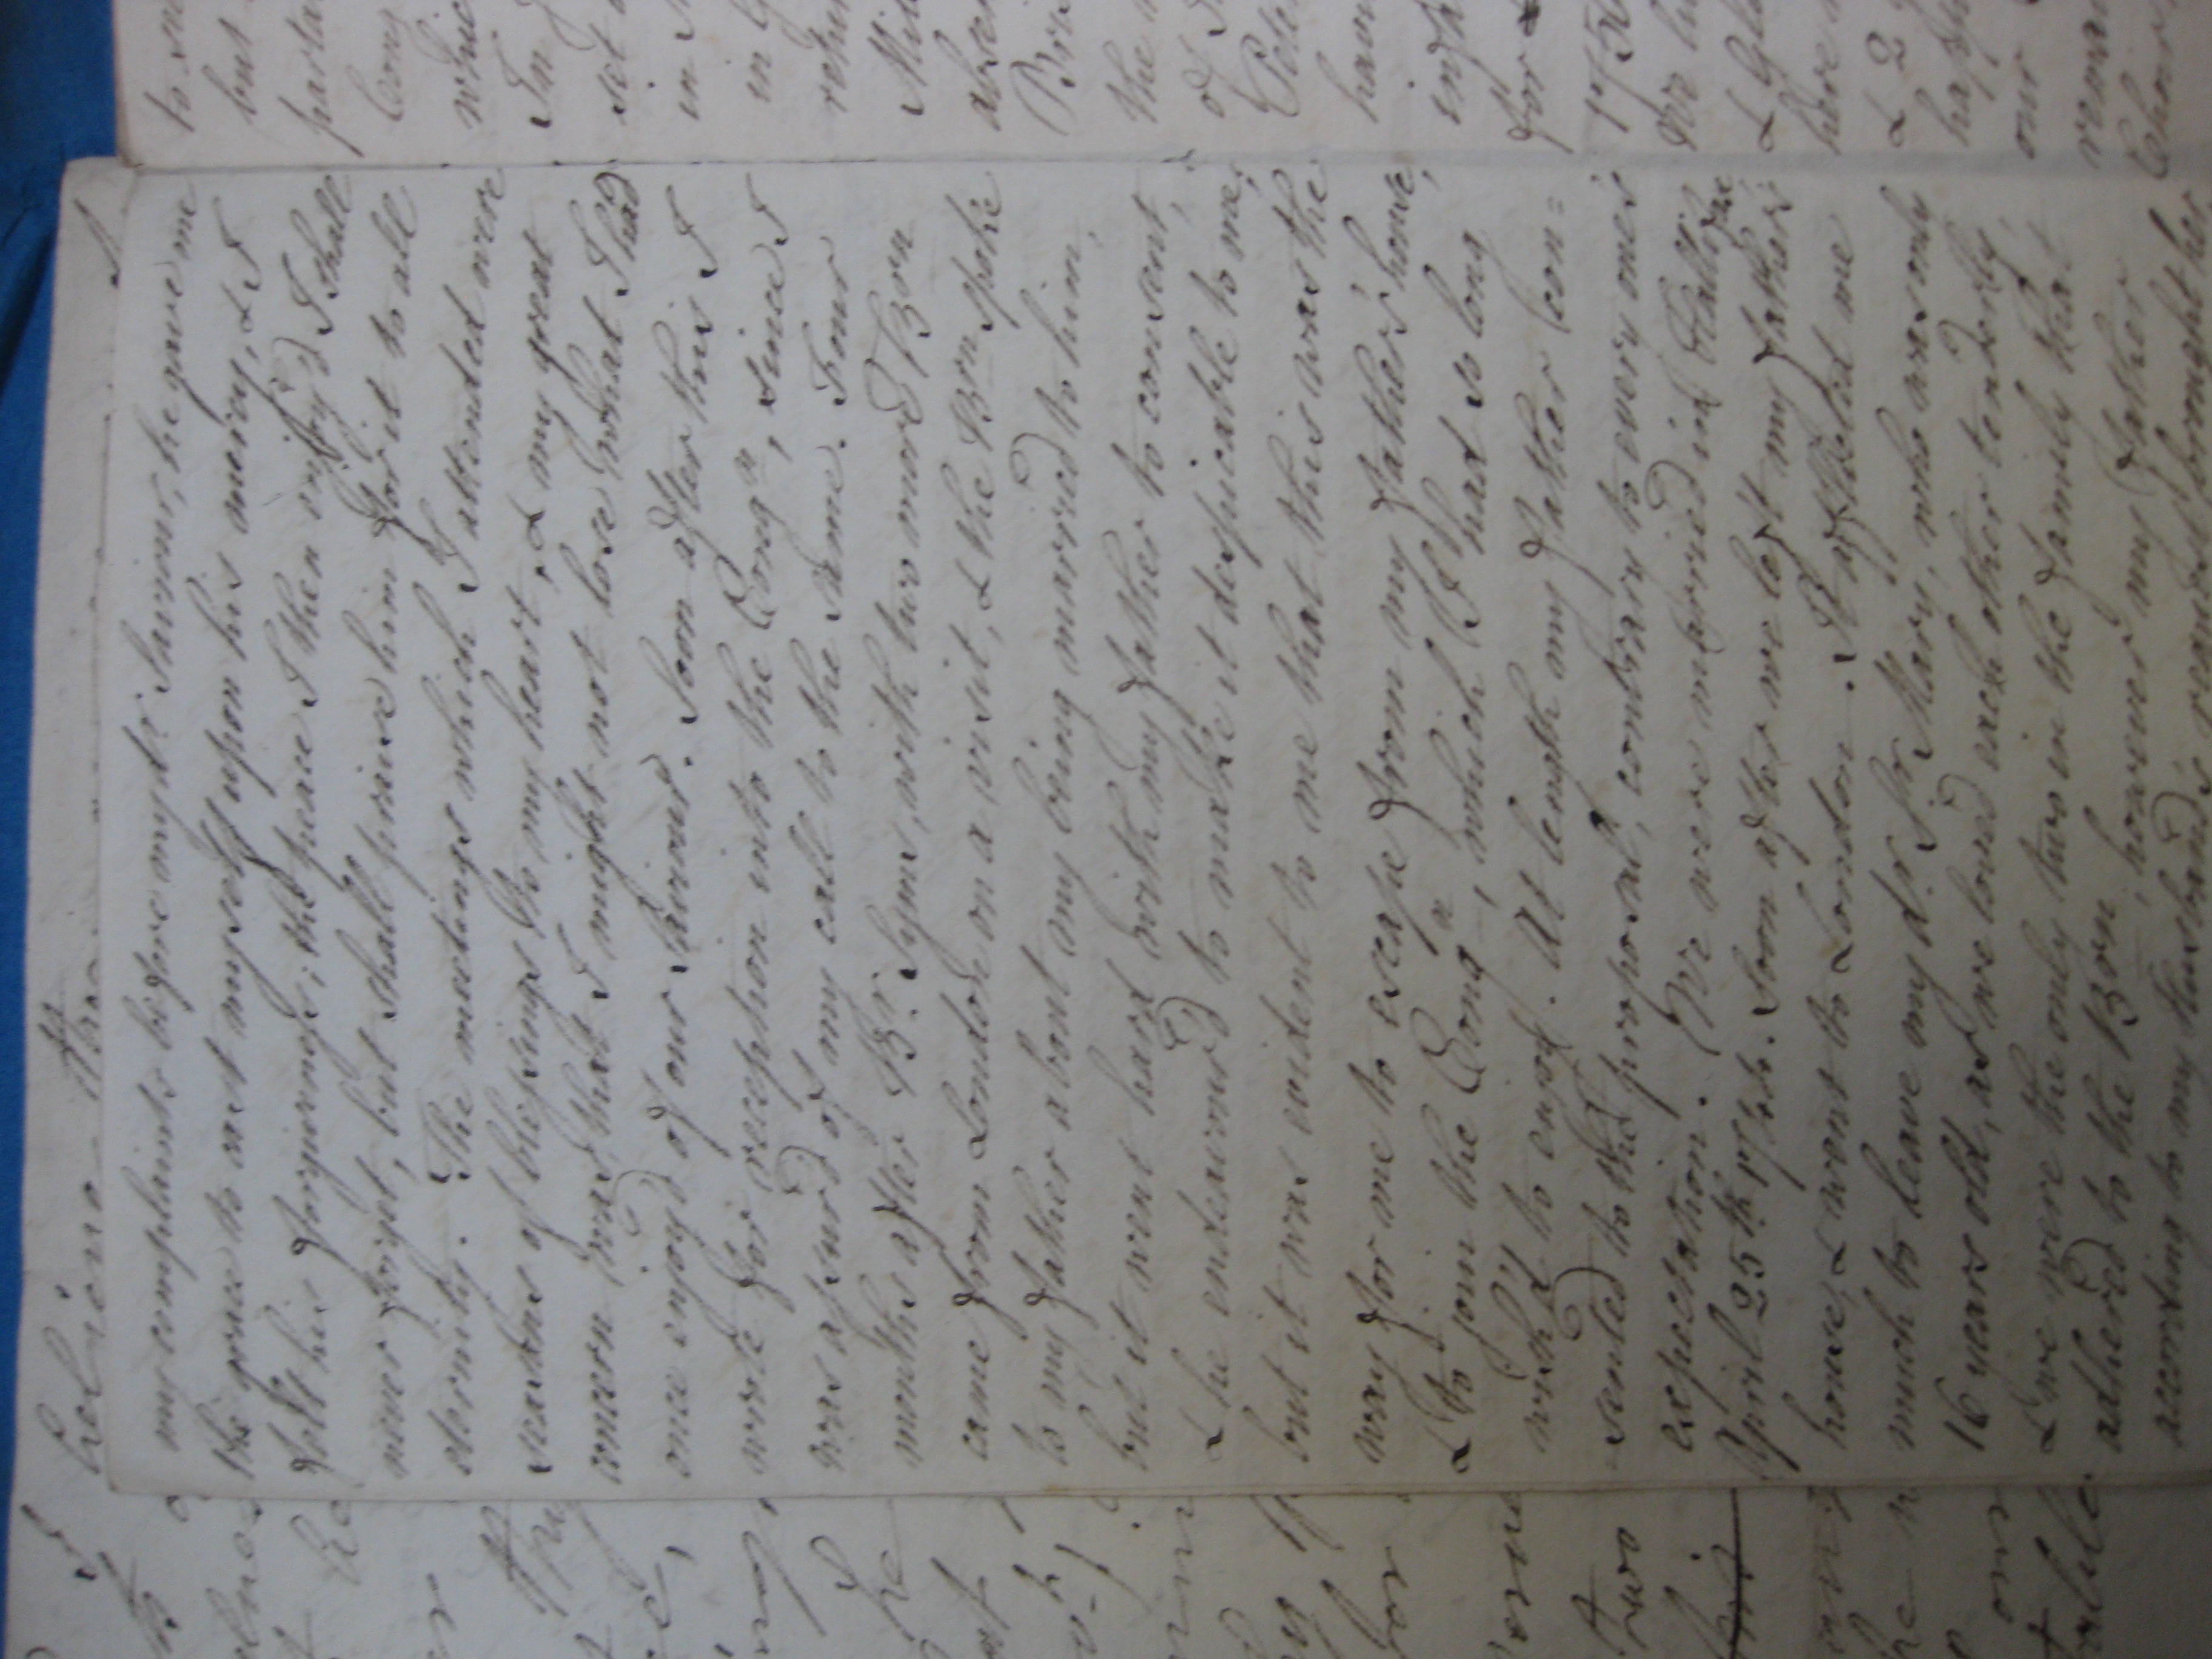 my complaints before my dr. Saviour, he gave me
the grace to cast myself upon his mercy, & I
felt his forgiveness; the peace I then enjoy'd I shall
never forget, but shall praise him for it to all
eternity. The meetings which I attended were
seasons of blessings to my heart, & my great
concern was, that I might not lose what I had
once enjoy'd of our Saviour. Soon after this I
wrote for reception into the Congn, since I
was assur'd of my call to the same. Four
months after Br. Syms, with two more Brn
came from London on a visit, & the Brn spoke
to my father about my being married to him,
but it went hard with my father to consent,
& he endeavour'd to make it despicable to me;
but it was evident to me that this was the
way for me to escape from my father's house,
& to join the Congn, which I had so long
wish'd to enjoy. At length my father con=
=sented to the proposal, contrary to every one's
expectation. We were married in Hallifax
April 25th. Soon after we left my father's
house, & went to London. It afflicted me
much to leave my dr. Sr. Mary, who was only
16 years old, as we loved each other tenderly,
& we were the only two in the family that
adhered to the Brn, however my father
according to my Husband's request brought her
to
but
which
In
set
in
in
the
of
for
here
& 2
our
he
two